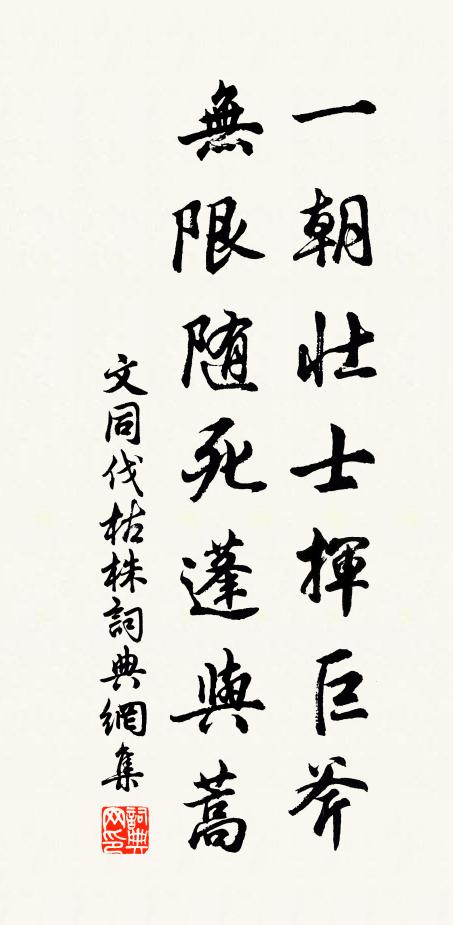 一朝壮士揮巨斧
無限随死蓬與蒿
文同伐枯株詞典網集
詞典网印